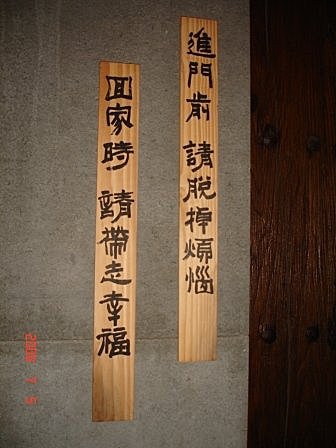 進門前 請脫掉煩惱
回家時 請帶走幸福
7 5